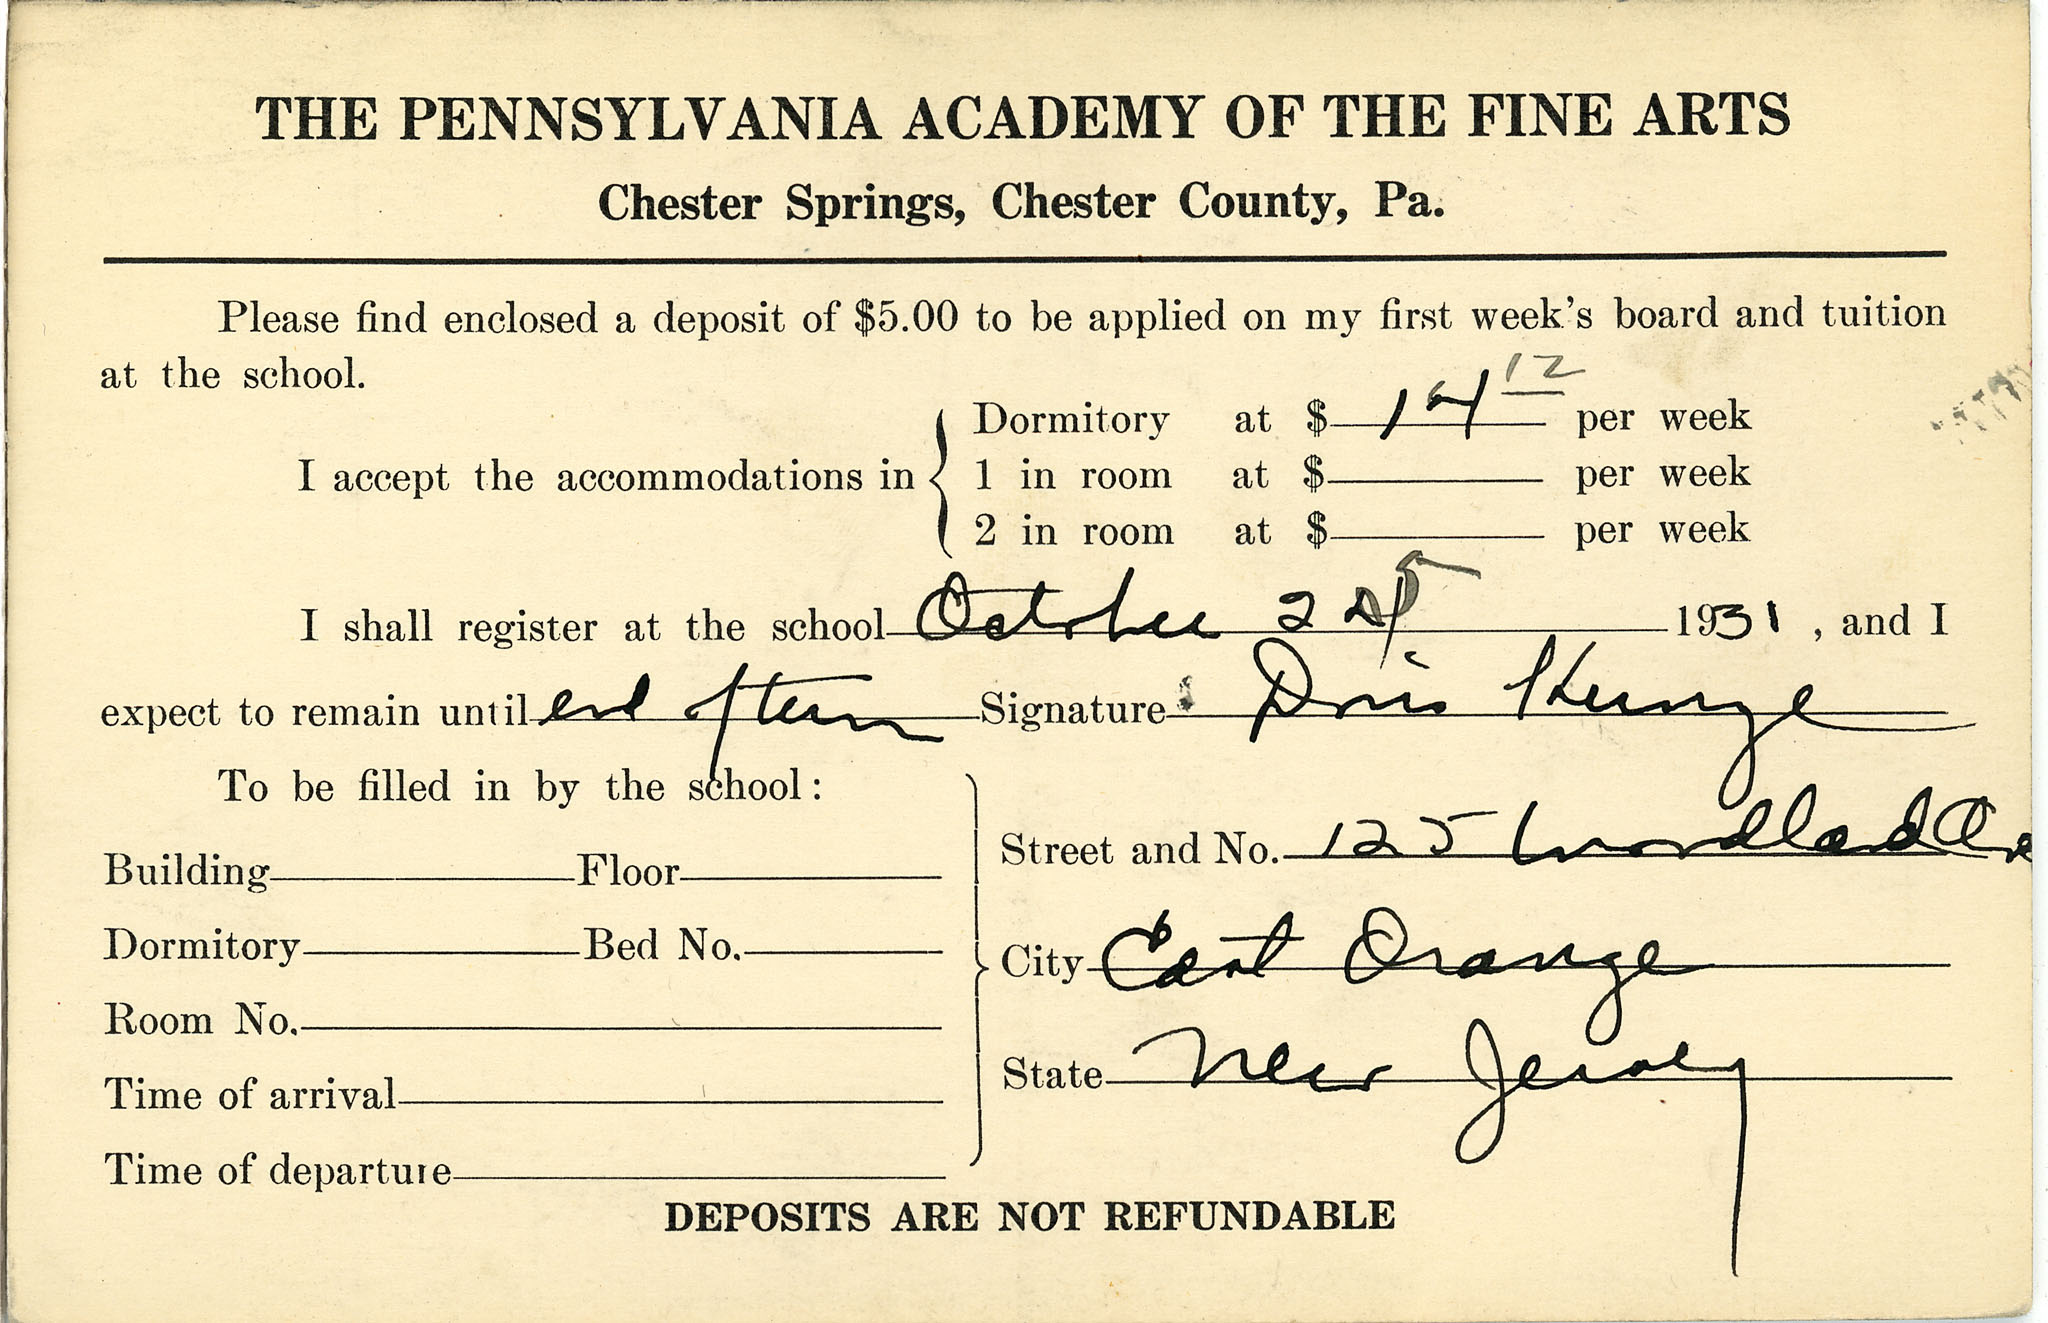 THE PENNSYLVANIA ACADEMY OF THE FINE ARTS
Chester Springs, Chester County, Pa.
Please find enclosed a deposit of $5.00 to be applied on my first week's board and tuition
at the school.
I accept the accommodations in
Dormitory at $ 14 12 per week
1 in room at $ per week
2 in room at $ per week
I shall register at the school October 25 1931, and I
expect to remain until end of term Signature Doris Kunze
To be filled in by the school:
Building Floor
Dormitory Bed No.
Room No.
Time of arrival
Time of departure
Street and No. 125 Woodland Ave
City East Orange
State New Jersey
DEPOSITS ARE NOT REFUNDABLE